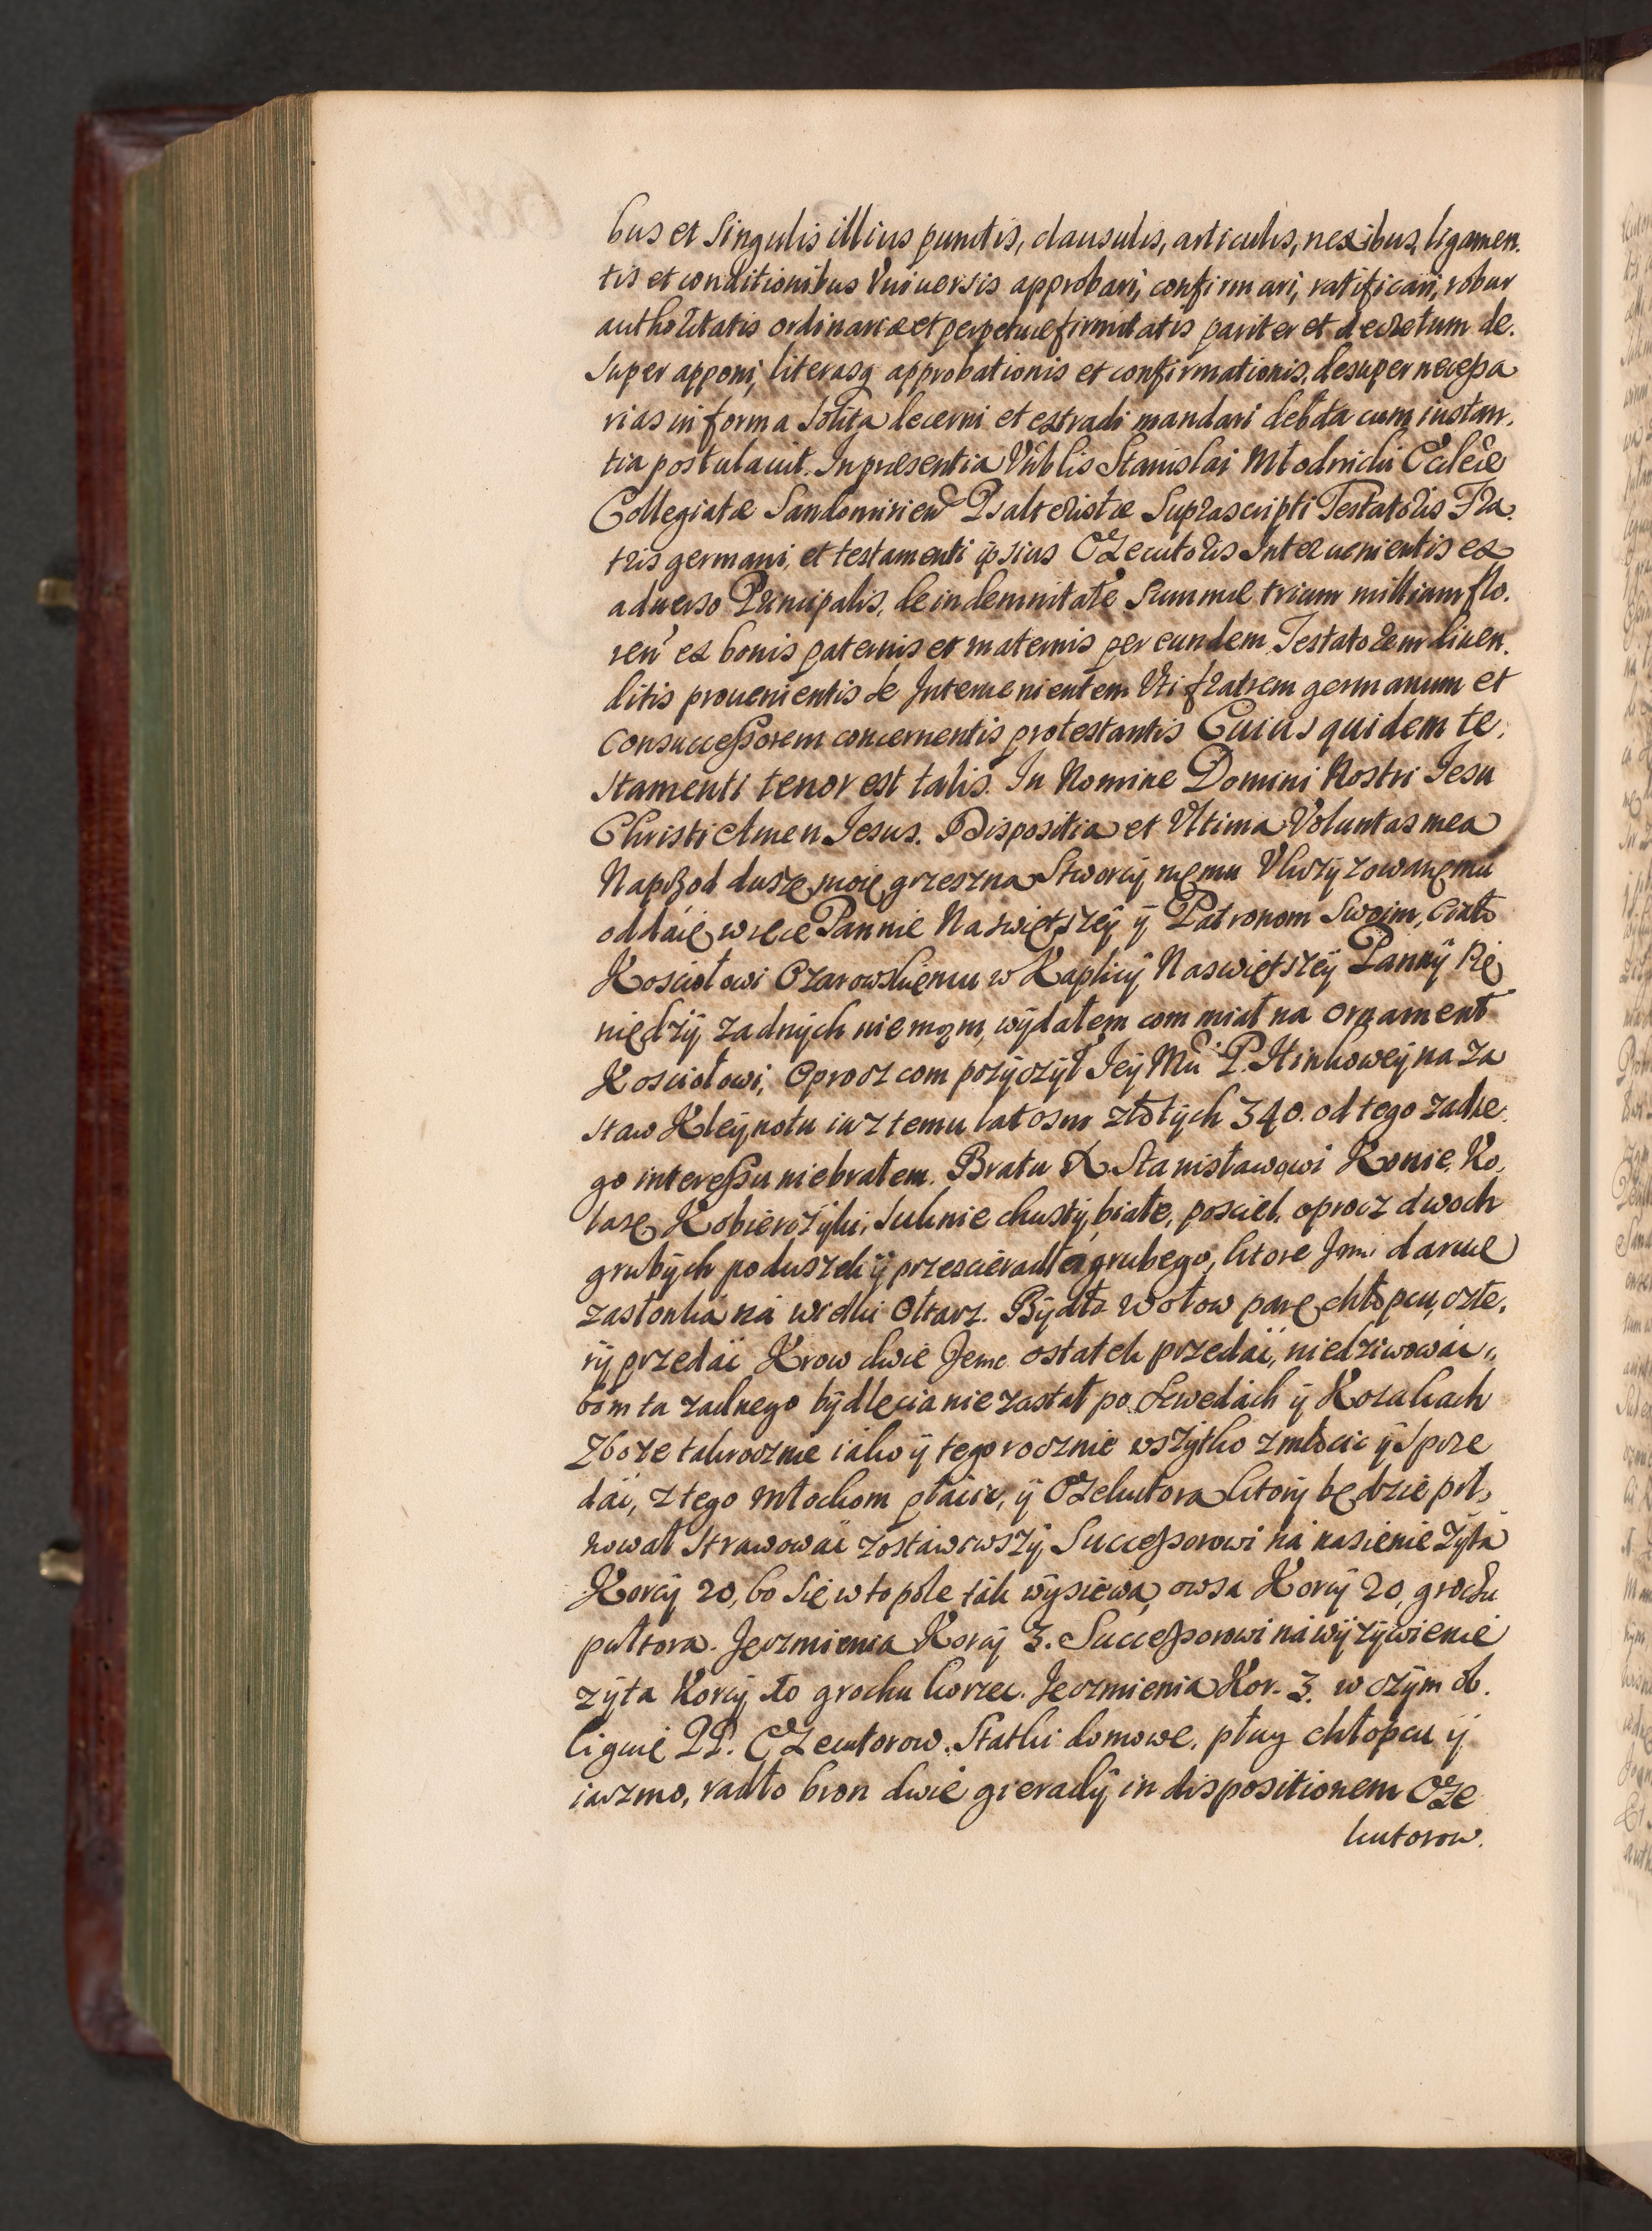 bus et singulis illius punctis, clausulis, articulis, nexibus, ligamen.
tis et conditionibus Vniuersis approbari, confirmari, ratificari, robur
authoritatis ordinariæ et perpetuæ firmitatis pariter et decretum de.
super apponi, literasq approbationis et confirmationis, desuper necessa
rias in forma solita decerni et extradi mandari debita cum instan.
tia postulauit. In præsentia Vnblis Stanislai Młodnicki Ecclæ
Collegiatæ Sandomirien Psalteristæ Suprascripti Testatoris Fra.
tris germani, et testamenti ipsius Exzecutoris Interuenientis ex
aduerso Principalis, de indemnitate Summæ trium millium flo.
ren ex bonis paternis et maternis per eundem Testatorem diuen.
ditis prouenientis se Interuenientem Vti fratrem germanum et
consuccessorem concernentis protestantis Cuius quidem te.
stamenti tenor est talis. In Nomine Domini Nostri Iesu
Christi Amen Iesus. Dispositia et Vltima Voluntas mea
Naprzod duszę moię grzeszną Stworcy memu Vkrzyzowanemu
oddáię w ręce Pannie Naswiętszey ÿ Patronom Swoim, Ciało
Kosciołowi Ozarowskiemu w Kaplicy Naswiętszey Panny Pie
niędzy zadnych niemąm, wydałem com miał na ornament
Kosciołowi, Oprocz com pozyczył Iey Mci P. Stinkowey na za
staw Kleynotu iusz temu lat osm złotych 340. od tego zadne.
go interessu niebrałem. Bratu X. Stanisławowi Konie, Ko.
lasę Kobierczyki, suknie chusty, białe, posciel, oprocz dwoch
grubych poduszek ÿ przescieradła grubego, ktore Jemu daruię
zasłonka ná wielki Ołtarz. Bydło wołow parę chłopcu, czte.
ry przedáć Krow dwie Jemc ostatek przedáć, niedziwowáć,
bom tu zadnego bydlęcia nie zastał po Szwedách ÿ Kozakach
Zboze takroczne iáko ÿ tegoroczne wszytko zmłocić ÿ sprze
dáć, z tego młockom płacic, ÿ Exekutora ktory będzie pil,
nował strawowáć zostawiwszy Successorowi ná nasienie Zyta
Korcy 20, bo się w to pole ták wysiewa, owsa Korcy 20, grochu
pułtora. Jęczmienia Korcy 3. Successorowi ná wyzywienie
zyta Korcy 10 grochu korzec. Jęczmienia Kor. 3. w czym ob.
liguię PP. Exzecutorow. Statki domowe, pług chłopcu ÿ
iarzmo, radło bron dwie gierady in dispositionem Exze
kutorow.